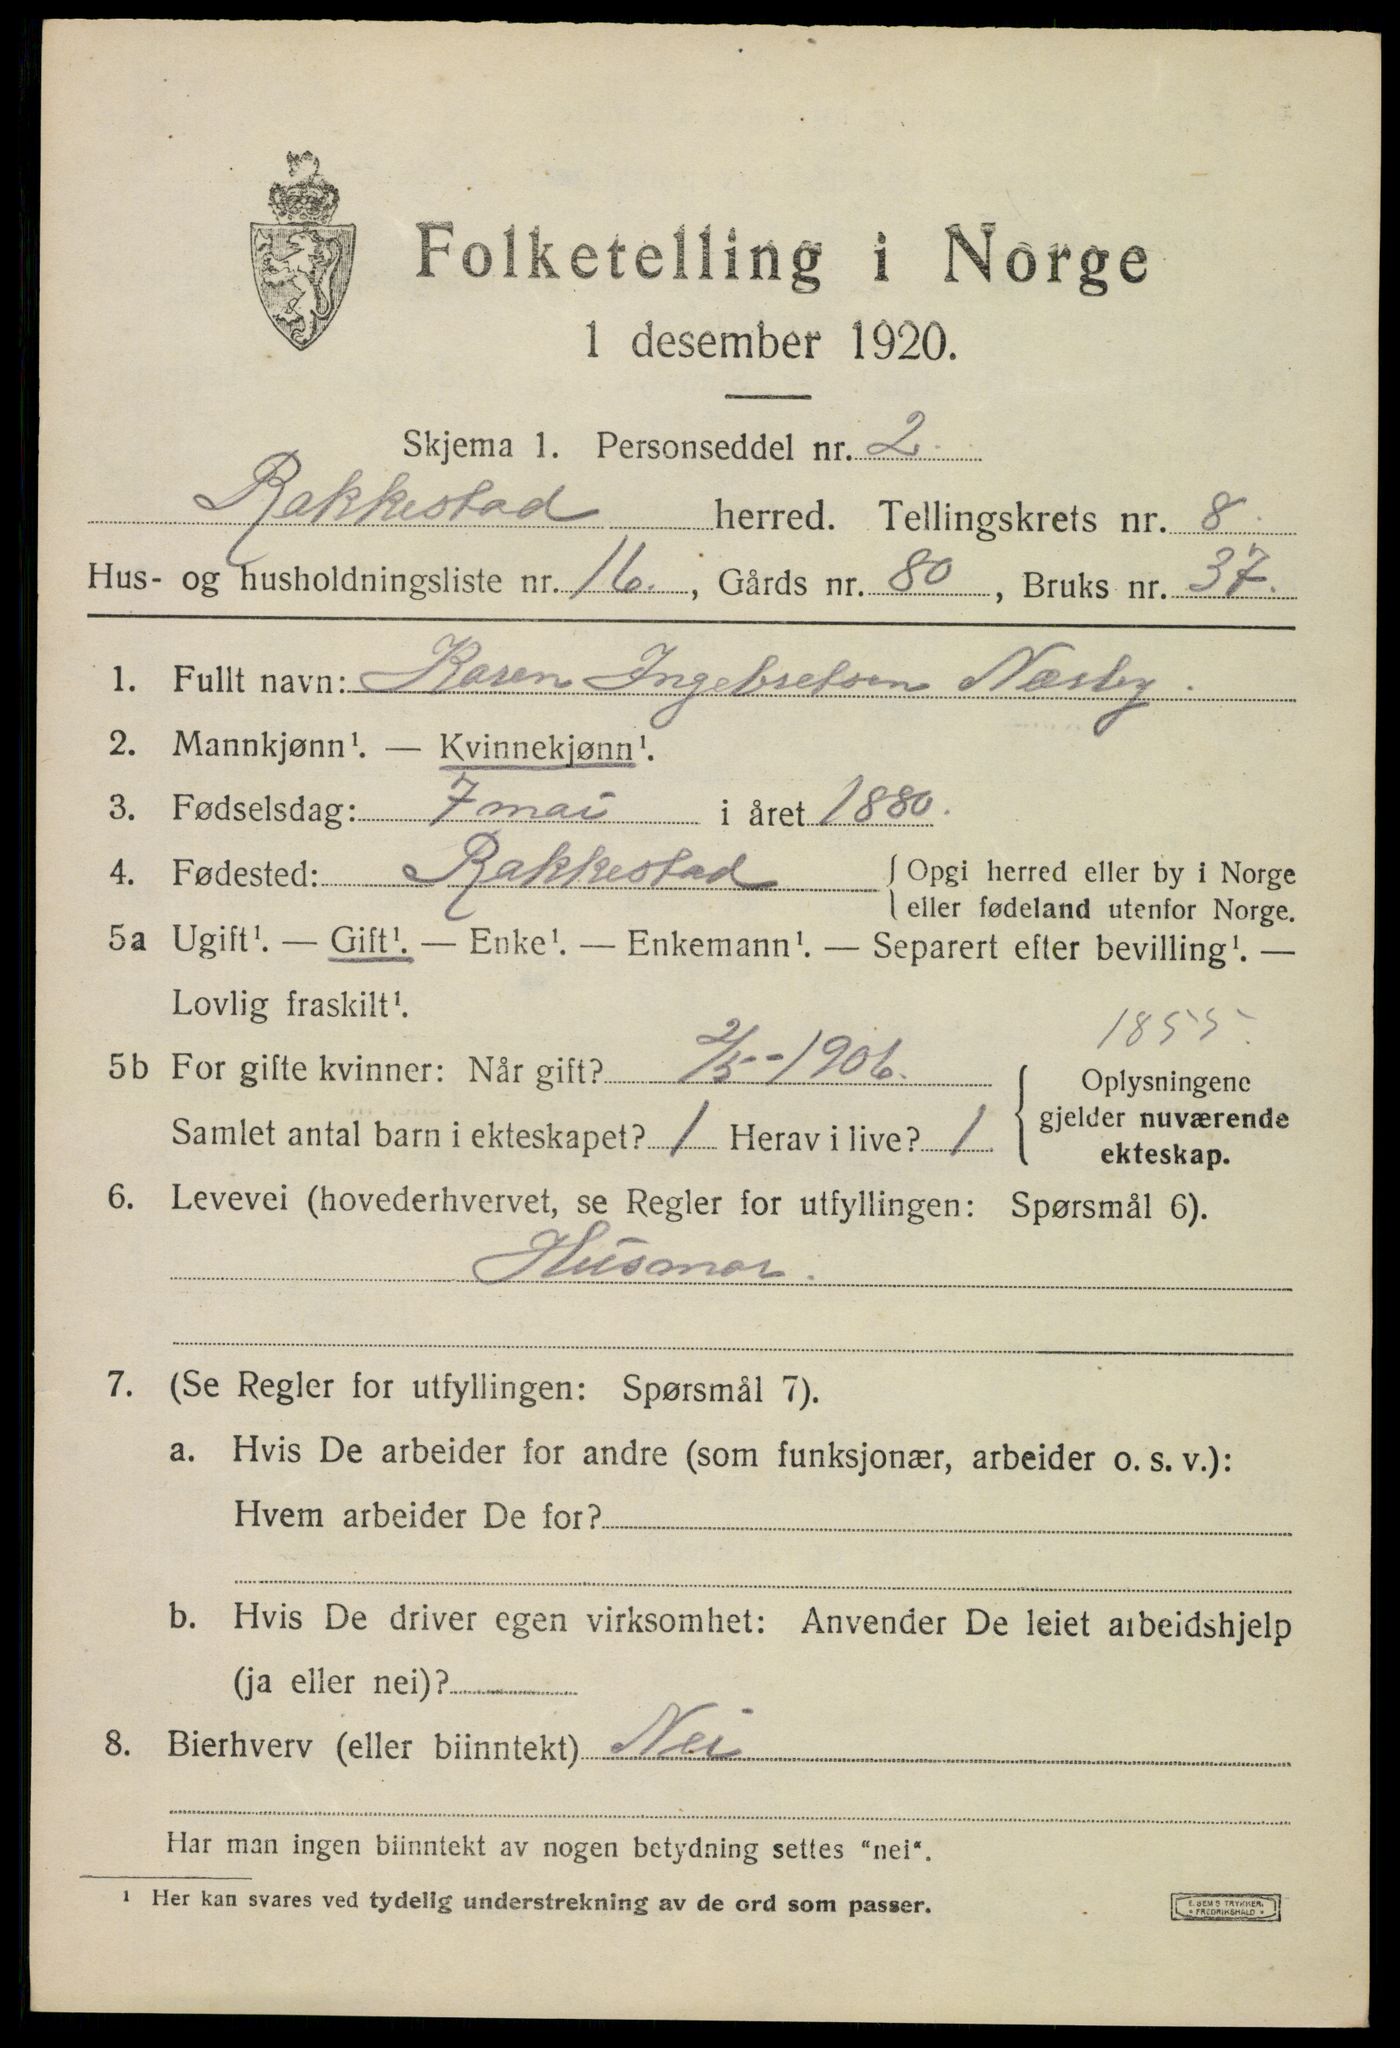 Folketelling i Norge
1 desember 1920.
Skjema 1. Personseddel nr. 2.
Rakkestad herred. Tellingskrets nr. 8.
Hus- og husholdningsliste nr. 16., Gårds nr. 80, Bruks nr. 37.
1. Fullt navn: Karen Ingebretsen Næsby.
2. Mannkjønn¹. — Kvinnekjønn¹.
3. Fødselsdag: 7 mai i året 1880.
4. Fødested: Rakkestad { Opgi herred eller by i Norge
eller fødeland utenfor Norge.
5a Ugift¹. — Gift¹. — Enke¹. — Enkemann¹. — Separert efter bevilling¹. —
Lovlig fraskilt¹.
1855.
5b For gifte kvinner: Når gift? 2/5-1906. { Oplysningene
gjelder nuværende
Samlet antal barn i ekteskapet? 1 Herav i live? 1
ekteskap.
6. Levevei (hovederhvervet, se Regler for utfyllingen: Spørsmål 6).
Husmor.
7. (Se Regler for utfyllingen: Spørsmål 7).
a. Hvis De arbeider for andre (som funksjonær, arbeider o. s. v.):
Hvem arbeider De for?
b. Hvis De driver egen virksomhet: Anvender De leiet arbeidshjelp
(ja eller nei)?
8. Bierhverv (eller biinntekt) Nei
Har man ingen biinntekt av nogen betydning settes "nei".
¹ Her kan svares ved tydelig understrekning av de ord som passer.
E. SEMS TRYKKERI
* FREDRIKSHALD *